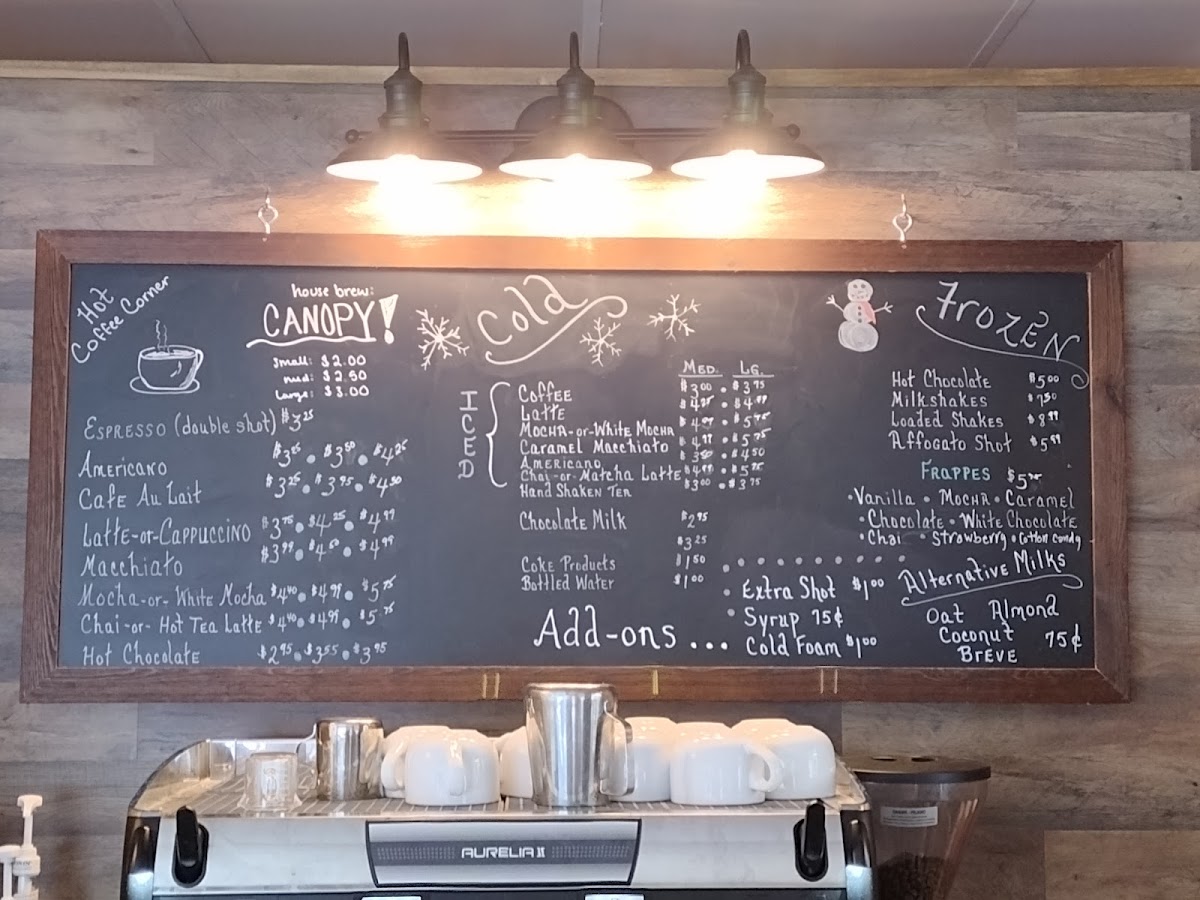 Hot
Coffee Corner
house brew:
CANOPY!
small: $2.00
med: $2.50
Large: $3.00
Espresso (double shot) $3.25
Americano • $3.50 • $4.25
Cafe Au Lait $3.25 • $3.95 • $4.50
Latte-or-Cappuccino $3.75 • $4.25 • $4.99
Macchiato $3.99 • $4.50 • $4.99
Mocha-or-White Mocha $4.40 • $4.99 • $5.75
Chai-or-Hot Tea Latte $4.40 • $4.99 • $5.75
Hot Chocolate $2.95 • $3.55 • $3.95
Cold
Med. Lg.
ICED
Coffee $3.00 • $3.75
Latte $4.25 • $4.99
Mocha-or-White Mocha $4.99 • $5.75
Caramel Macchiato $4.99 • $5.75
Americano $3.50 • $4.50
Chai-or-Matcha Latte $4.99 • $5.75
Hand Shaken Tea $3.00 • $3.75
Chocolate Milk $2.95
$3.25
Coke Products $1.50
Bottled Water $1.00
Add-ons...
• Extra Shot $1.00
• Syrup 75¢
• Cold Foam $1.00
Frozen
Hot Chocolate $5.00
Milkshakes $7.50
Loaded Shakes $8.99
Affogato Shot $5.99
Frappes
•Vanilla • Mocha • Caramel
•Chocolate • White Chocolate
•Chai • Strawberry • Cotton Candy
Alternative Milks
Oat Almond
Coconut 75¢
Breve
AURELIA II